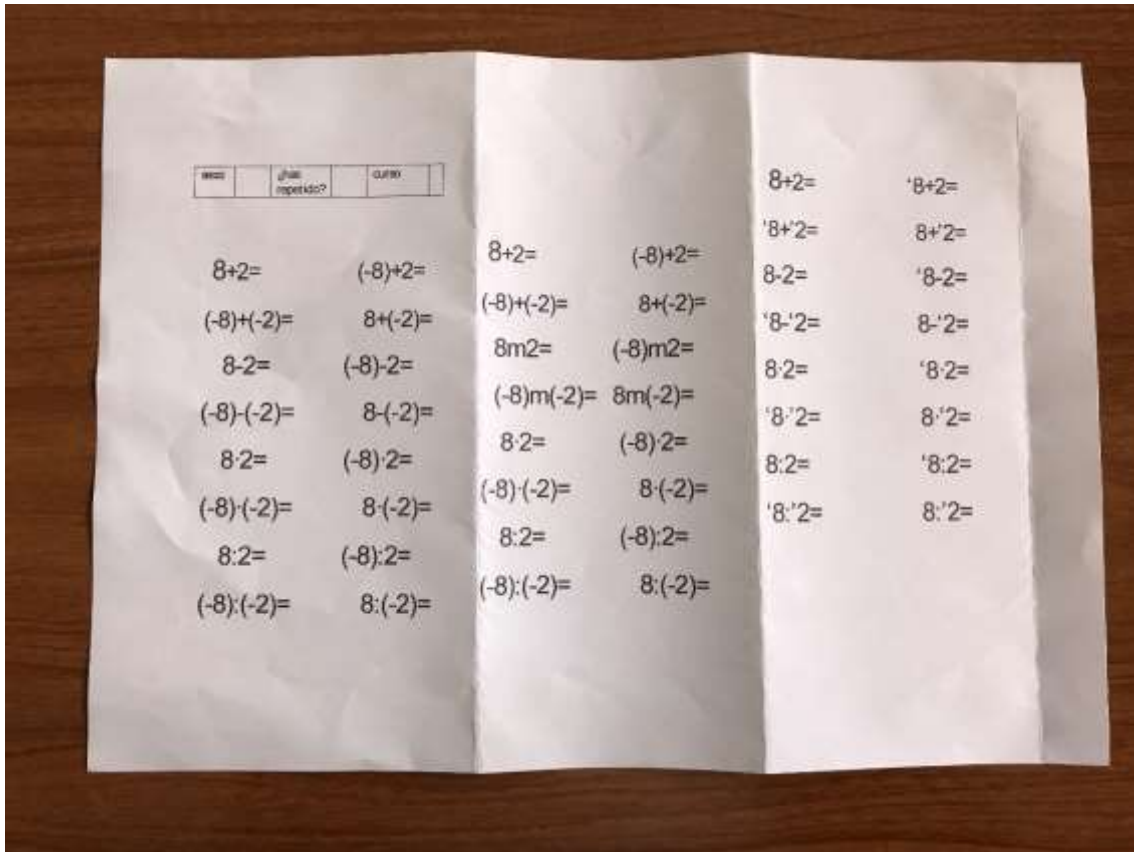 sexo ¿has repetido? curso
8+2= (-8)+2=
(-8)+(-2)= 8+(-2)=
8-2= (-8)-2=
(-8)-(-2)= 8-(-2)=
8·2= (-8)·2=
(-8)·(-2)= 8·(-2)=
8:2= (-8):2=
(-8):(-2)= 8:(-2)=
8+2= (-8)+2=
(-8)+(-2)= 8+(-2)=
8m2= (-8)m2=
(-8)m(-2)= 8m(-2)=
8·2= (-8)·2=
(-8)·(-2)= 8·(-2)=
8:2= (-8):2=
(-8):(-2)= 8:(-2)=
8+2= ‘8+2=
‘8+’2= 8+’2=
8-2= ‘8-2=
‘8-‘2= 8-‘2=
8·2= ‘8·2=
‘8·’2= 8·’2=
8:2= ‘8:2=
‘8:’2= 8:’2=